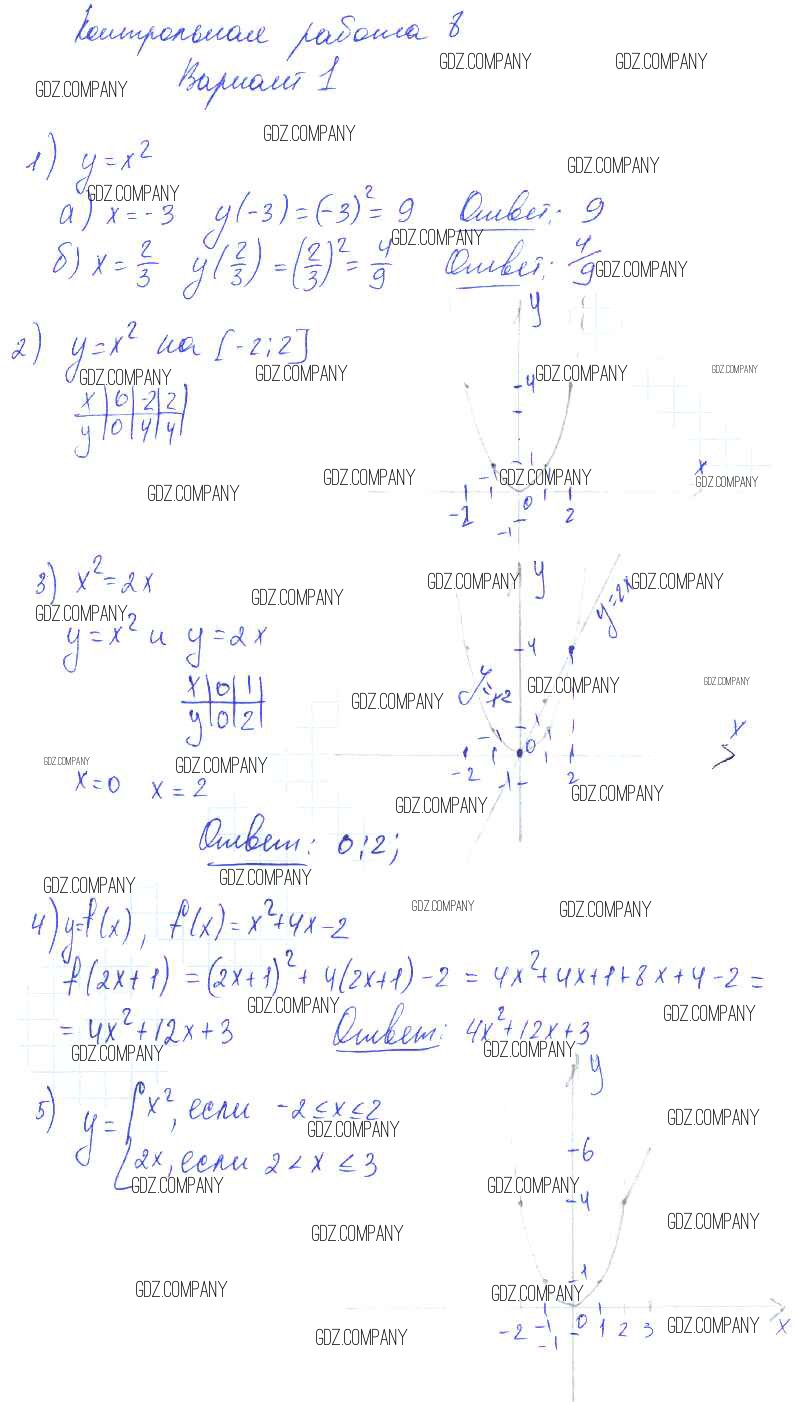 Контрольная работа 8
GDZ.COMPANY GDZ.COMPANY
Вариант 1
GDZ.COMPANY
GDZ.COMPANY
1) y = x²
GDZ.COMPANY
GDZ.COMPANY
а) x = -3 y(-3) = (-3)² = 9 Ответ: 9
GDZ.COMPANY
б) x = 2/3 y(2/3) = (2/3)² = 4/9 Ответ: 4/9
GDZ.COMPANY
y
2) y = x² на [-2; 2]
GDZ.COMPANY GDZ.COMPANY GDZ.COMPANY GDZ.COMPANY
4
x | 0 | -2 | 2
y | 0 | 4 | 4
1
x
GDZ.COMPANY GDZ.COMPANY GDZ.COMPANY GDZ.COMPANY
-2 -1 0 1 2
-1
3) x² = 2x
y
GDZ.COMPANY GDZ.COMPANY GDZ.COMPANY
y=2x
GDZ.COMPANY
y = x² и y = 2x
4
x | 0 | 1
y | 0 | 2
y=x2
GDZ.COMPANY GDZ.COMPANY GDZ.COMPANY
x
1 1
-1 0
GDZ.COMPANY GDZ.COMPANY
-2 -1 1 2
x = 0 x = 2
GDZ.COMPANY GDZ.COMPANY
Ответ: 0; 2;
GDZ.COMPANY GDZ.COMPANY
GDZ.COMPANY GDZ.COMPANY
4) y=f(x), f(x) = x²+4x-2
f(2x+1) = (2x+1)² + 4(2x+1) - 2 = 4x²+4x+1+8x+4-2 =
GDZ.COMPANY GDZ.COMPANY
= 4x²+12x+3 Ответ: 4x²+12x+3
GDZ.COMPANY GDZ.COMPANY
y
5) y = { x², если -2 ≤ x ≤ 2
GDZ.COMPANY GDZ.COMPANY
2x, если 2 < x ≤ 3
6
GDZ.COMPANY GDZ.COMPANY
4
GDZ.COMPANY GDZ.COMPANY
1
GDZ.COMPANY GDZ.COMPANY
-2 -1 0 1 2 3 x
-1
GDZ.COMPANY GDZ.COMPANY